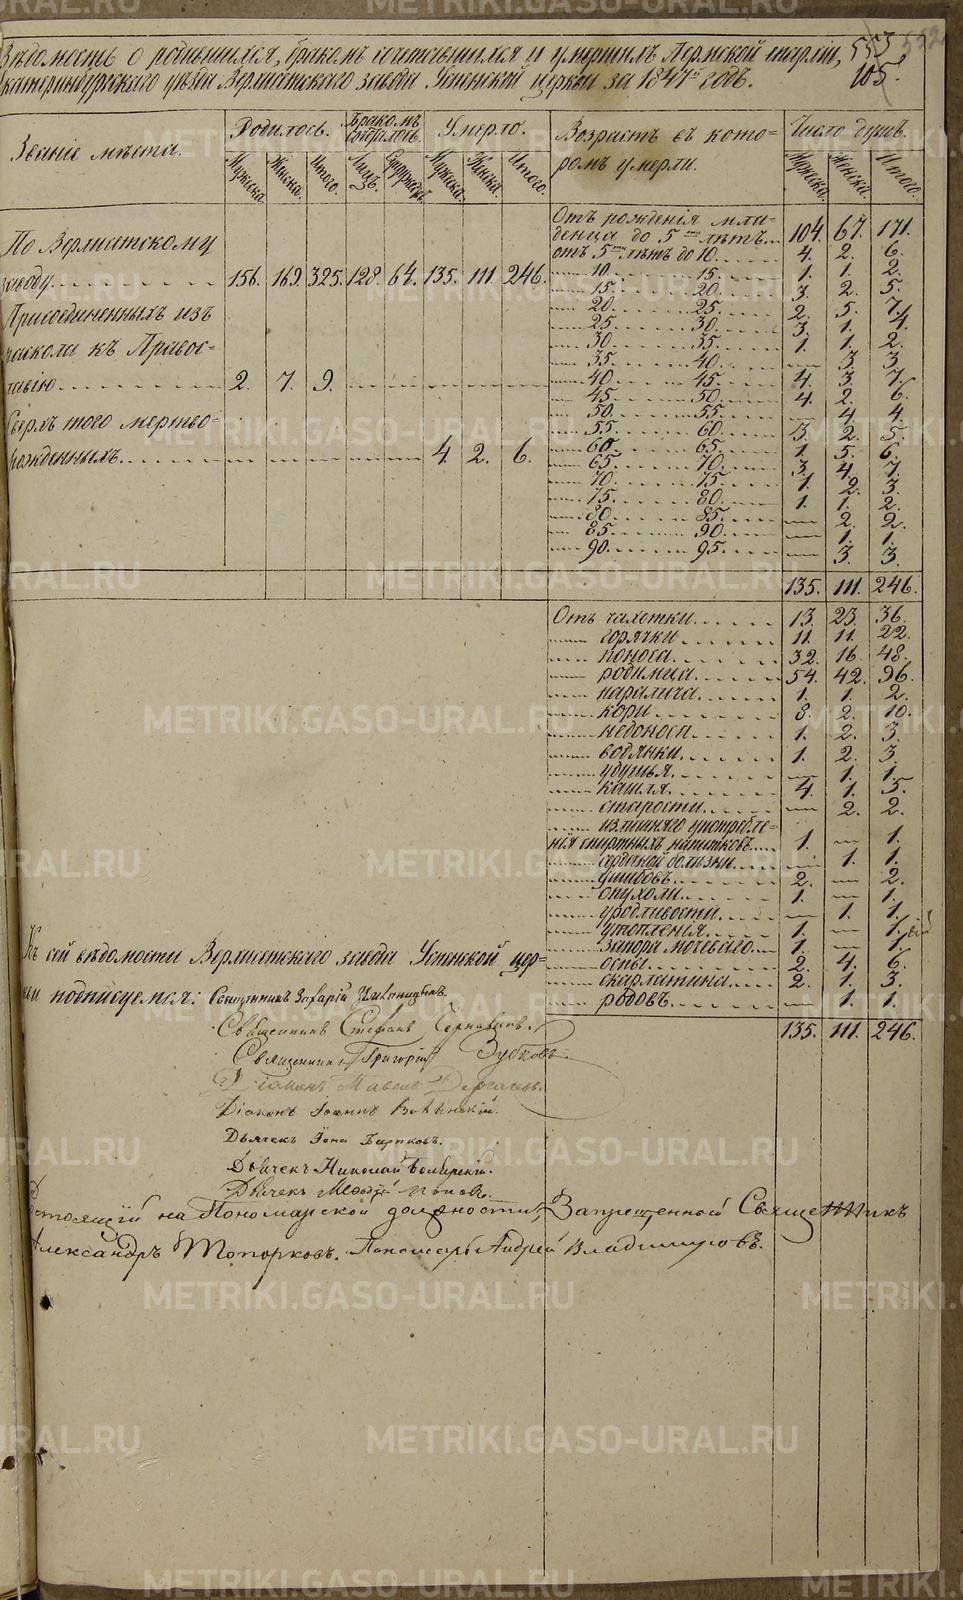 Вѣдомость о родившихся, бракомъ сочетавшихся и умершихъ Пермской епархіи,
Екатеринбургскаго уѣзда Верхисетскаго завода Успенской церкви за 1847й годъ.
553
105.
Званіе мѣста.
Родилось.
Бракомъ
Умерло.
Возрастъ въ кото-
ромъ умерли.
Число душъ.
Мужеска. Женска. Итого. Лицъ. Мужеска. Женска. Итого.
Мужеска. Женска. Итого.
По Верхисетскому
заводу 156. 169. 325. 128. 64. 135. 111. 246.
Присоединенныхъ изъ
раскола къ Правос-
лавію 2. 7. 9.
Сверхъ того мертво-
рожденныхъ. 4. 2. 6.
Отъ рожденія мла-
денца до 5 лѣтъ 104. 67. 171.
отъ 5 лѣтъ до 10. 4. 2. 6.
10. 15. 1. 1. 2.
15. 20. 3. 2. 5.
20. 25. 2. 5. 7.
25. 30. 3. 1. 4.
30. 35. 1. 1. 2.
35. 40. — 3. 3.
40. 45. 4. 3. 7.
45. 50. 4. 2. 6.
50. 55. — 4. 4.
55. 60. 3. 2. 5.
60. 65. 1. 5. 6.
65. 70. 3. 4. 7.
70. 75. 1. 2. 3.
75. 80. 1. 1. 2.
80. 85. — 2. 2.
85. 90. — 1. 1.
90. 95. — 3. 3.
135. 111. 246.
Отъ чахотки 13. 23. 36.
— горячки 11. 11. 22.
— поноса 32. 16. 48.
— родимца 54. 42. 96.
— паралича 1. 1. 2.
— кори 8. 2. 10.
— недоноси 1. 2. 3.
— водянки 1. 2. 3.
— удушья — 1. 1.
— кашля 4. 1. 5.
— старости — 2. 2.
— излишняго употребле-
нія спиртныхъ напитковъ 1. — 1.
— сердечной болѣзни — 1. 1.
— ушибовъ 2. — 2.
— опухоли 1. — 1.
— уродливости — 1. 1.
— утопленія 1. — 1.
— запора мочеваго 1. — 1.
— оспы 2. 4. 6.
— скарлатина 2. 1. 3.
— родовъ — 1. 1.
135. 111. 246.
Къ сей вѣдомости Верхисетскаго завода Успенской цер-
кви подписуемся: Священникъ Захарій
Священникъ Стефанъ
Священникъ Григорій Зубковъ
Діаконъ Павелъ
Діаконъ Іоаннъ
Дьячекъ Іона
Дьячекъ Николай
Дьячекъ Меѳодій Поповъ.
Состоящій на Пономарской должности, Запрещенной Священникъ
Александръ Топорковъ. Пономарь Андрей Владимировъ.
METRIKI.GASO-URAL.RU